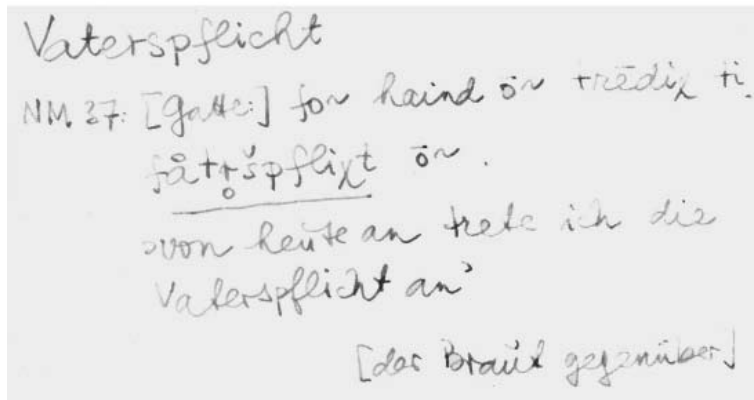 Vaterspflicht
NM. 37: [Gatte:] fon haind ōn trēdiχ ti
få̄tr̥špfliχt ōn.
›von heute an trete ich die
Vaterspflicht an‹
[der Braut gegenüber]